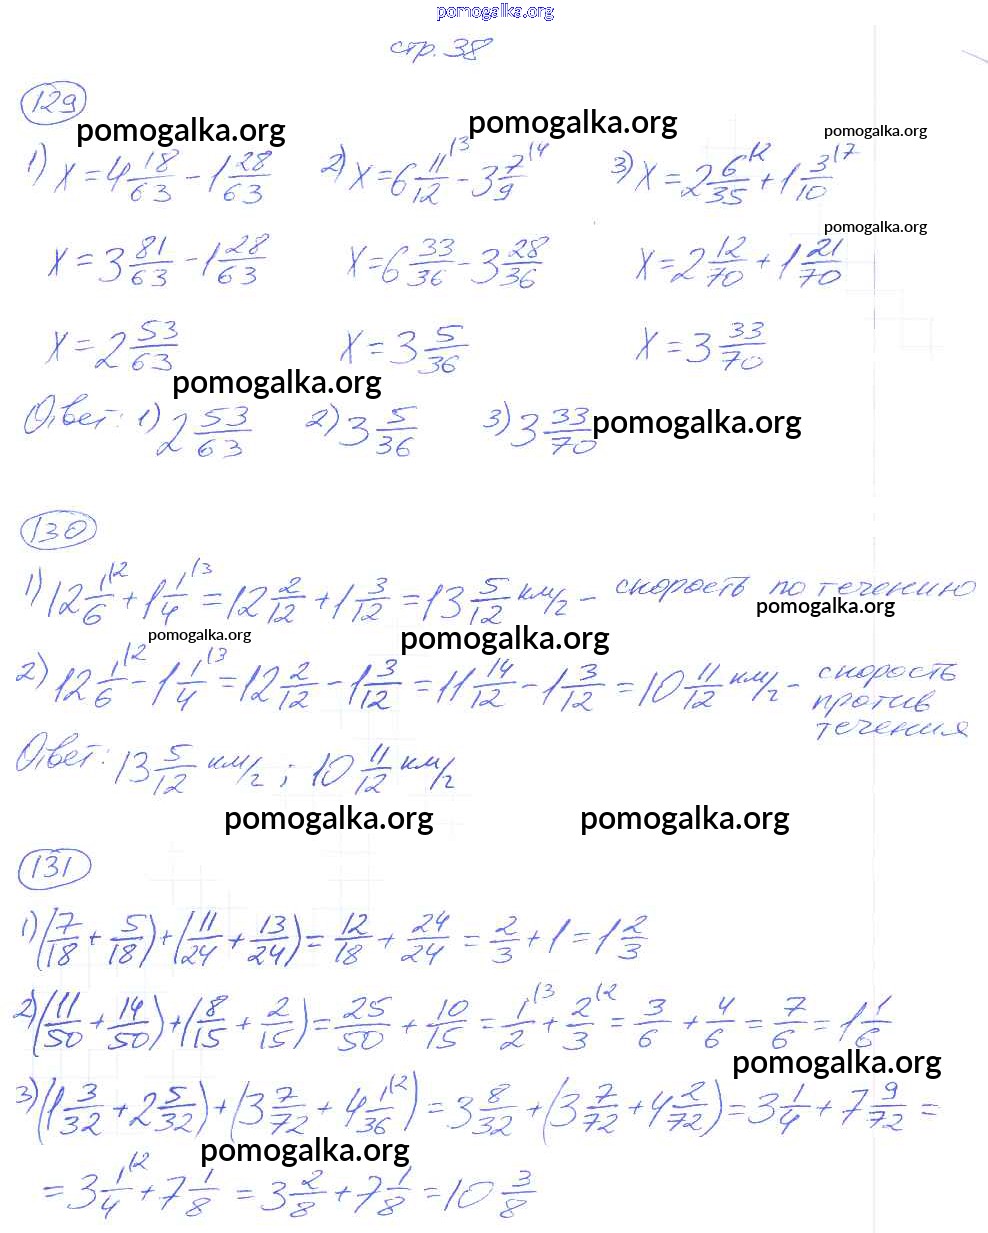 pomogalka.org
стр. 38
129
pomogalka.org pomogalka.org pomogalka.org
1) x = 4 18/63 - 1 28/63 2) x = 6 11/12 (3 - 3 7/9 (4 3) x = 2 6/35 (2 + 1 3/10 (7
pomogalka.org
x = 3 81/63 - 1 28/63 x = 6 33/36 - 3 28/36 x = 2 12/70 + 1 21/70
x = 2 53/63 x = 3 5/36 x = 3 33/70
pomogalka.org
Ответ: 1) 2 53/63 2) 3 5/36 3) 3 33/70 pomogalka.org
130
1) 12 1/6 (2 + 1 1/4 (3 = 12 2/12 + 1 3/12 = 13 5/12 км/г - скорость по течению
pomogalka.org
pomogalka.org pomogalka.org
2) 12 1/6 (2 - 1 1/4 (3 = 12 2/12 - 1 3/12 = 11 14/12 - 1 3/12 = 10 11/12 км/г - скорость
против
течения
Ответ: 13 5/12 км/г ; 10 11/12 км/г
pomogalka.org pomogalka.org
131
1) (7/18 + 5/18) + (11/24 + 13/24) = 12/18 + 24/24 = 2/3 + 1 = 1 2/3
2) (11/50 + 14/50) + (8/15 + 2/15) = 25/50 + 10/15 = 1/2 (3 + 2/3 (2 = 3/6 + 4/6 = 7/6 = 1 1/6
pomogalka.org
3) (1 3/32 + 2 5/32) + (3 7/72 + 4 1/36 (2) = 3 8/32 + (3 7/72 + 4 2/72) = 3 1/4 + 7 9/72 =
pomogalka.org
= 3 1/4 (2 + 7 1/8 = 3 2/8 + 7 1/8 = 10 3/8